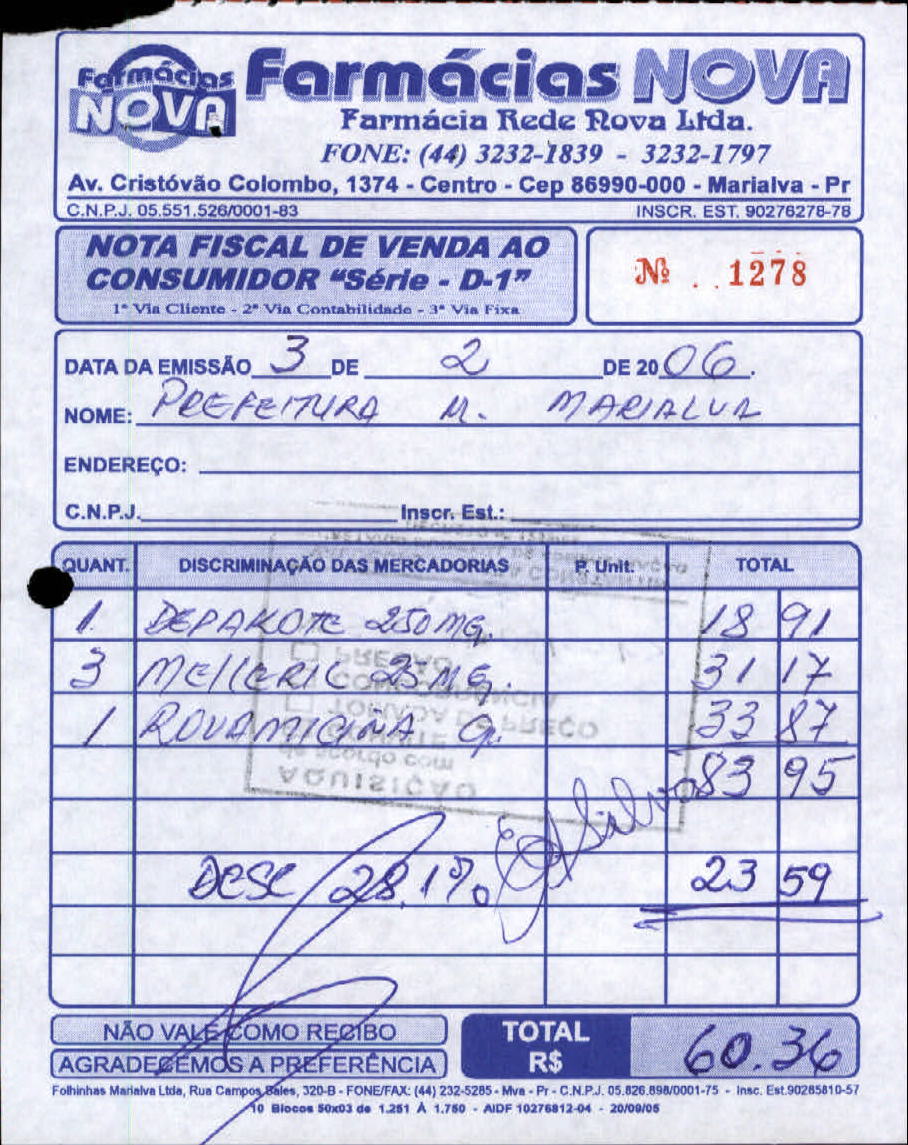 Farmácias NOVA
Farmácias NOVA
Farmácia Rede Nova Ltda.
FONE: (44) 3232-1839 - 3232-1797
Av. Cristóvão Colombo, 1374 - Centro - Cep 86990-000 - Marialva - Pr
C.N.P.J. 05.551.526/0001-83 INSCR. EST. 90276278-78
NOTA FISCAL DE VENDA AO
CONSUMIDOR "Série - D-1"
1ª Via Cliente - 2ª Via Contabilidade - 3ª Via Fixa
Nº 1278
DATA DA EMISSÃO 3 DE 2 DE 20 06.
NOME: PREFEITURA M. MARIALVA
ENDEREÇO:
C.N.P.J. Inscr. Est.:
QUANT. DISCRIMINAÇÃO DAS MERCADORIAS P. Unit. TOTAL
1 DEPAKOTE 250 MG. 18 91
3 MELLERIL 25 MG. 31 17
1 ROVAMICINA G. 33 87
83 95
DESC 28,1% 23 59
AQUISIÇÃO
de acordo com
TOMADA DE PREÇO
CONCORRÊNCIA
PREGÃO
NÃO VALE COMO RECIBO
AGRADECEMOS A PREFERÊNCIA
TOTAL
R$ 60.36
Folhinhas Marialva Ltda, Rua Campos Sales, 320-B - FONE/FAX: (44) 232-5285 - Mva - Pr - C.N.P.J. 05.826.898/0001-75 - Insc. Est.90285810-57
10 Blocos 50x03 de 1.251 À 1.750 - AIDF 10276812-04 - 20/09/05